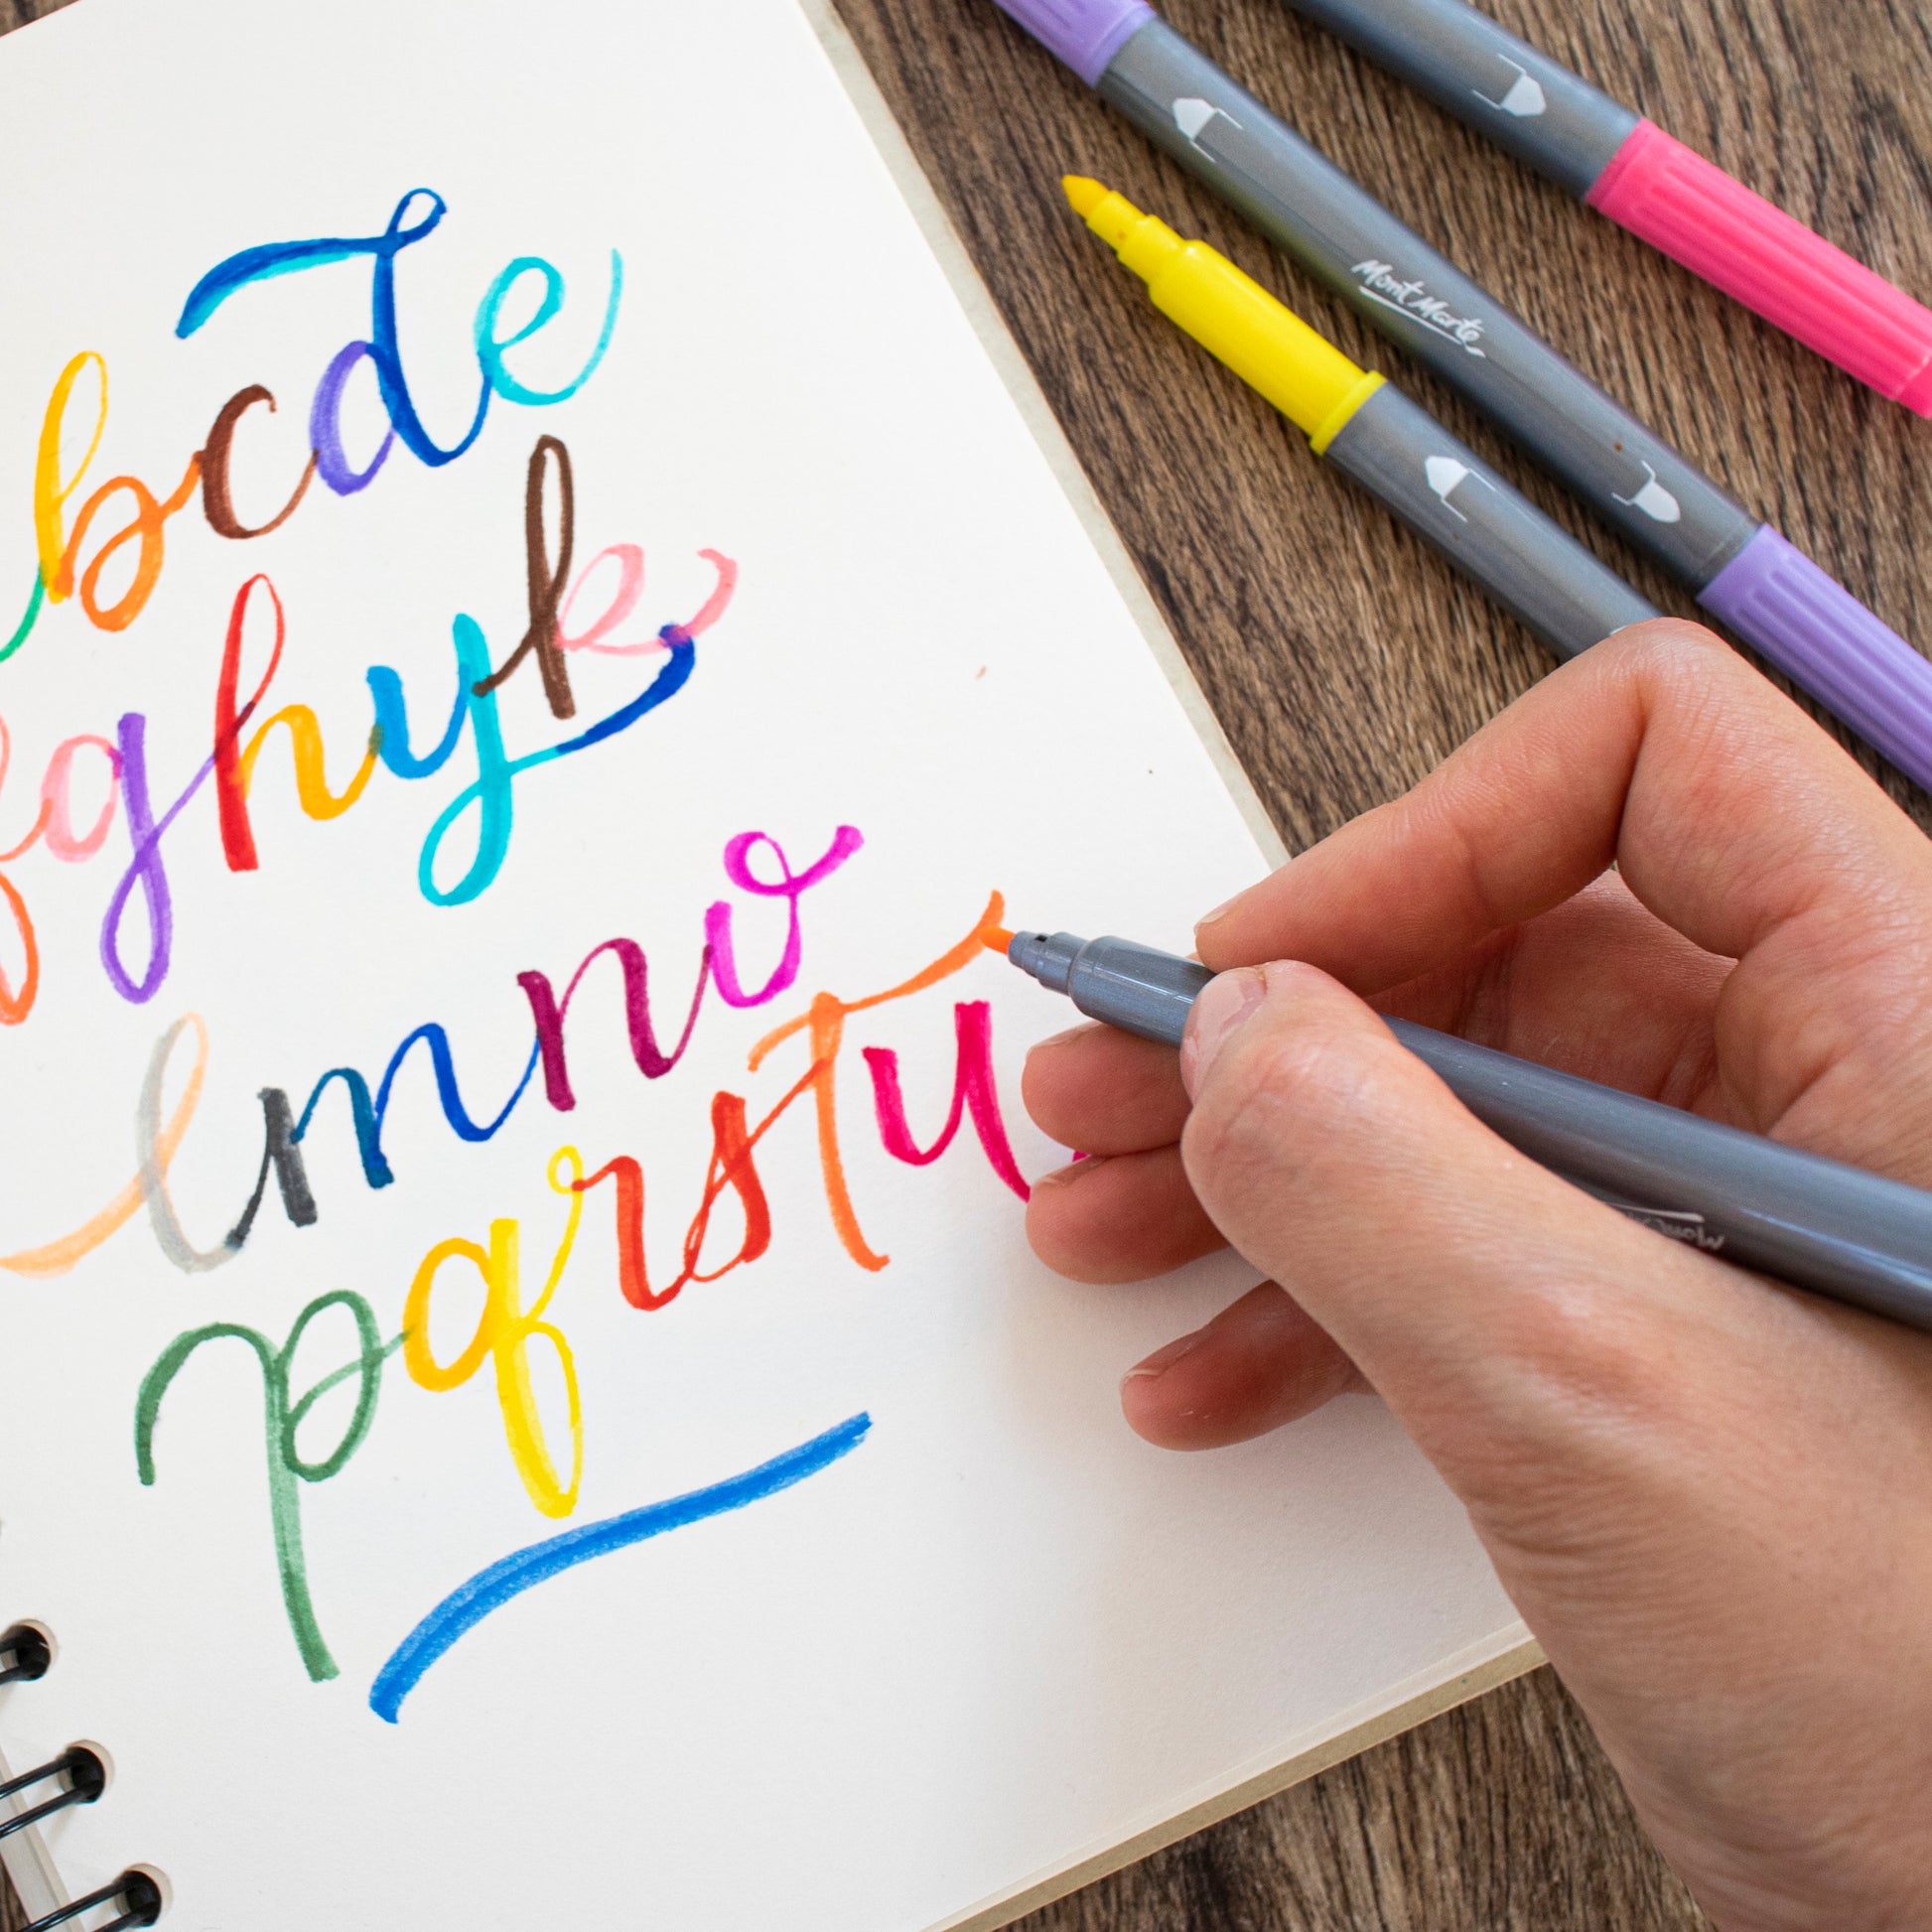 bcde
fghyk
lmno
pqrstu
Mont Marte